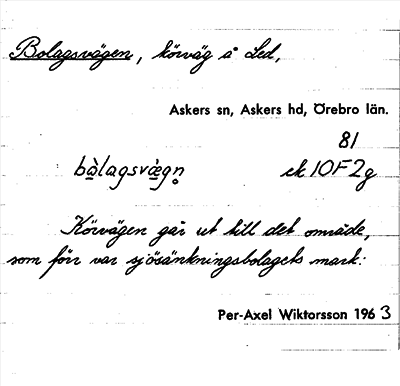 Bolagsvägen, körväg å Led,
Askers sn, Askers hd, Örebro län.
81
bòlagsvæ̀gn̥ ek 10F2g
Körvägen går ut till det område,
som förr var sjösänkningsbolagets mark.
Per-Axel Wiktorsson 1963